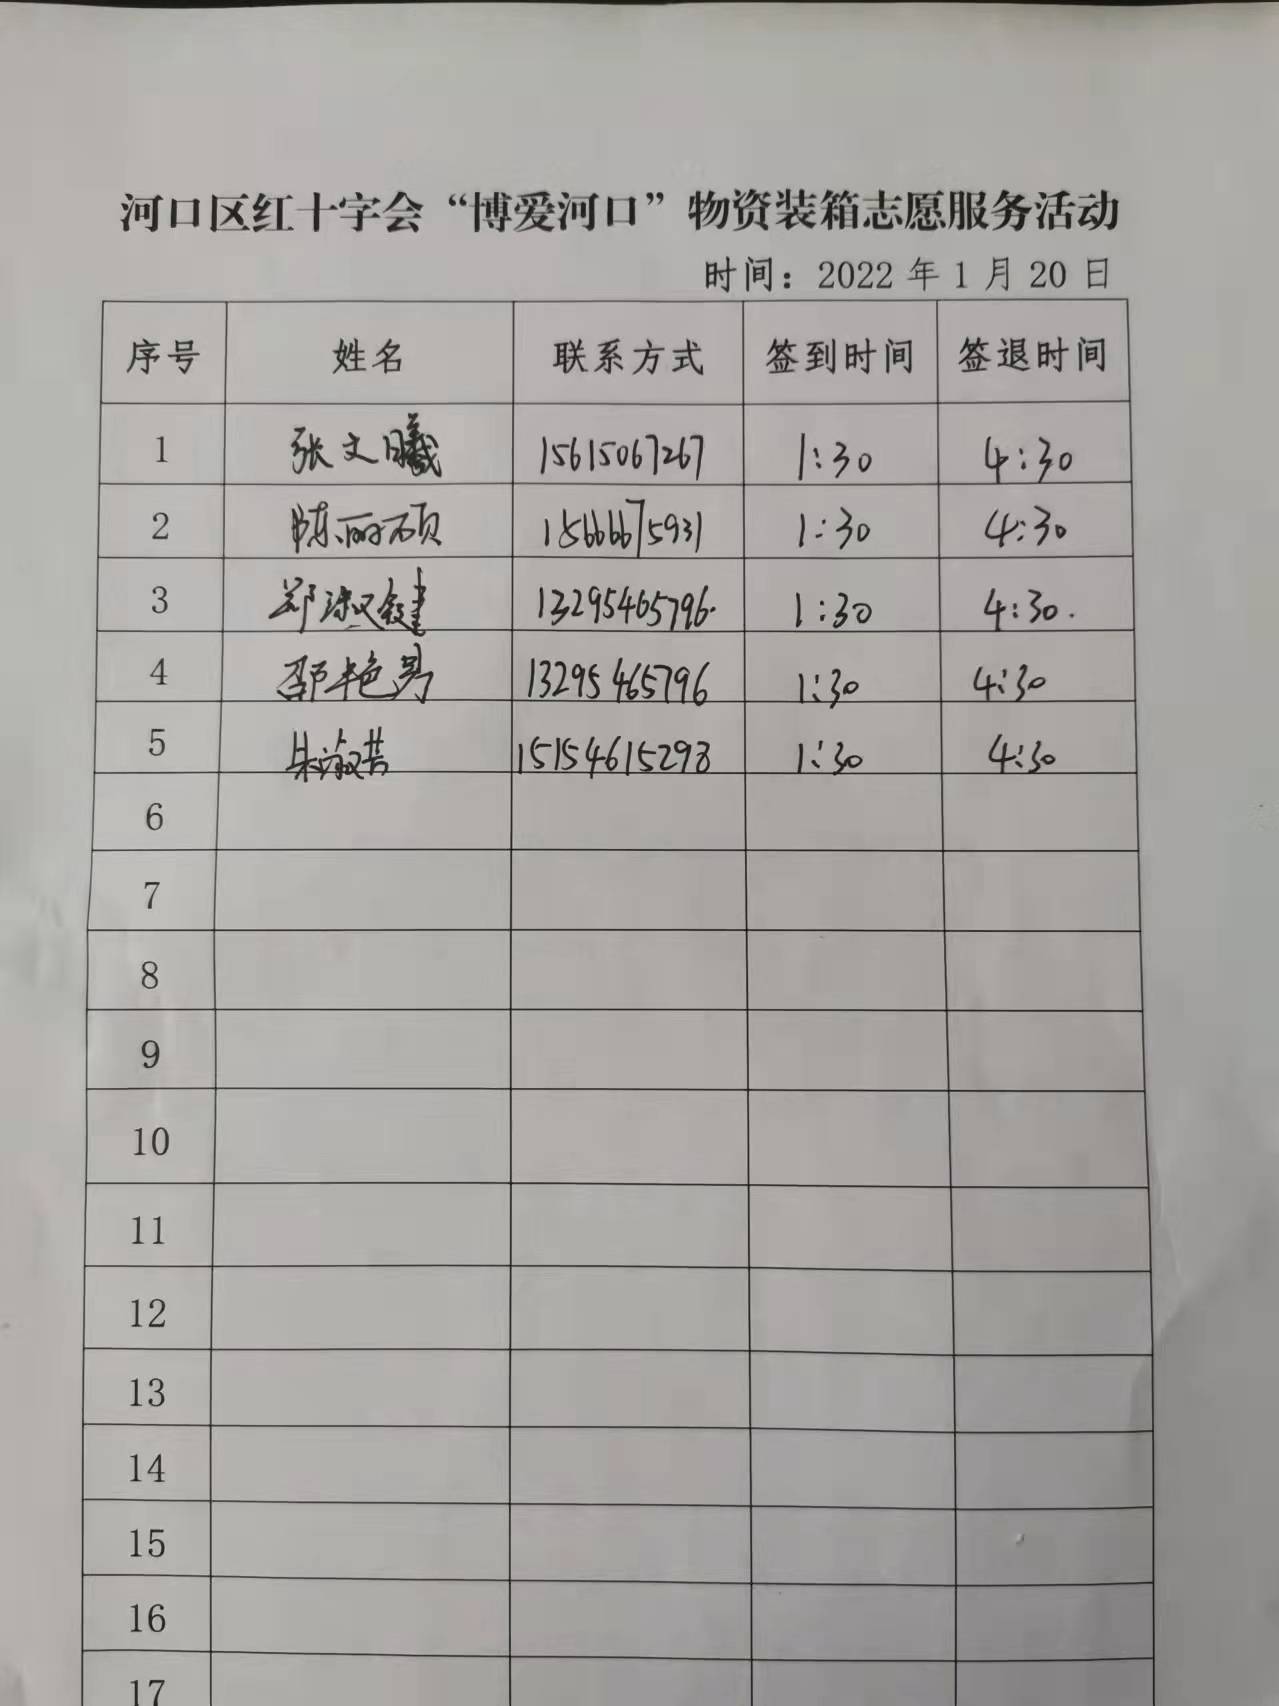 河口区红十字会“博爱河口”物资装箱志愿服务活动
时间：2022 年 1 月 20 日
序号 姓名 联系方式 签到时间 签退时间
1 张文曦 15615067267 1:30 4:30
2 陈丽硕 15666675931 1:30 4:30
3 郑 13295465796. 1:30 4:30.
4 邵艳男 13295465796 1:30 4:30
5 朱淑芸 15154615298 1:30 4:30
6
7
8
9
10
11
12
13
14
15
16
17